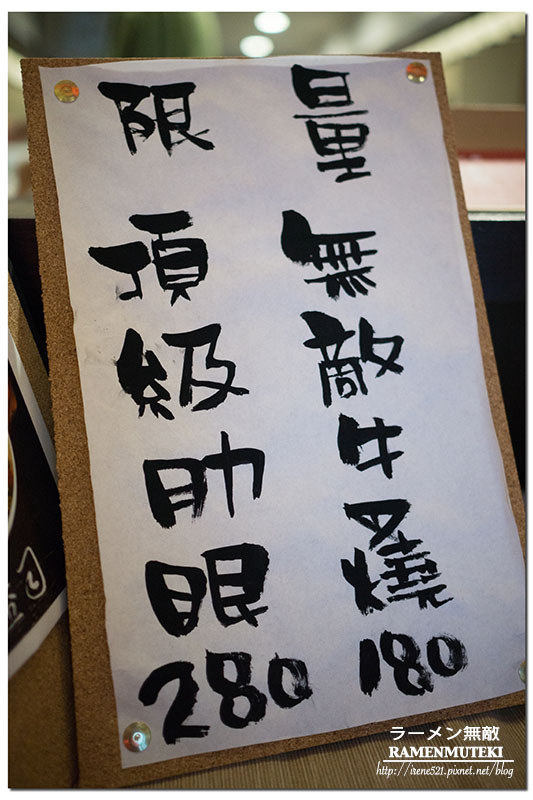 限量
無敵牛叉燒180
頂級肋眼280
ラーメン無敵
RAMENMUTEKI
http://irene521.pixnet.net/blog